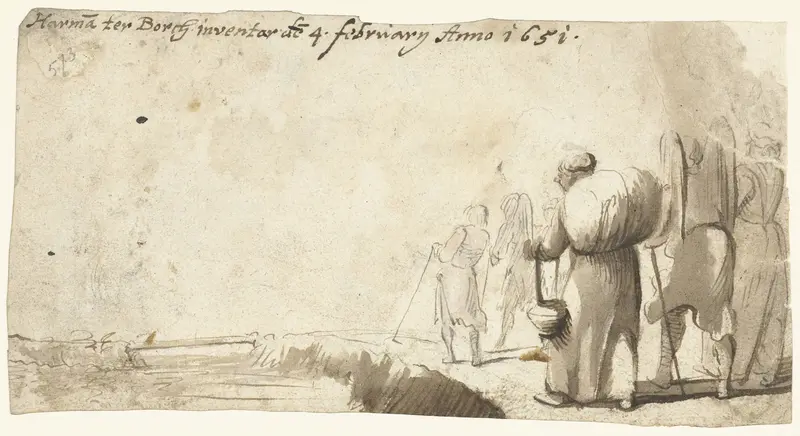 Harmā ter Borch inventar dē 4. februarij Anno 1651.
523